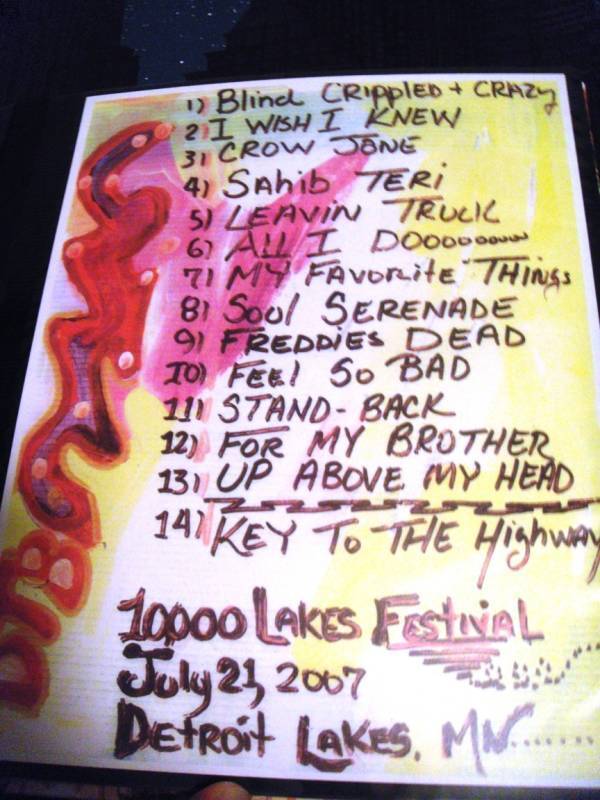 1) Blind CRippled + CRAZy
2) I WISH I KNEW
3) CROW JANE
4) Sahib TERi
5) LEAVIN TRUCK
6) All I DOooooooo
7) MY FAVORite THINGs
8) Soul SERENADE
9) FREDDiEs DEAD
10) FEEl So BAD
11) STAND-BACK
12) FOR MY BROTHER
13) UP ABOVE MY HEAD
14) KEY To THE Highway
10,000 LAKES FESTIVAL
July 21, 2007
DETROit LAKES, MN.......
DTB